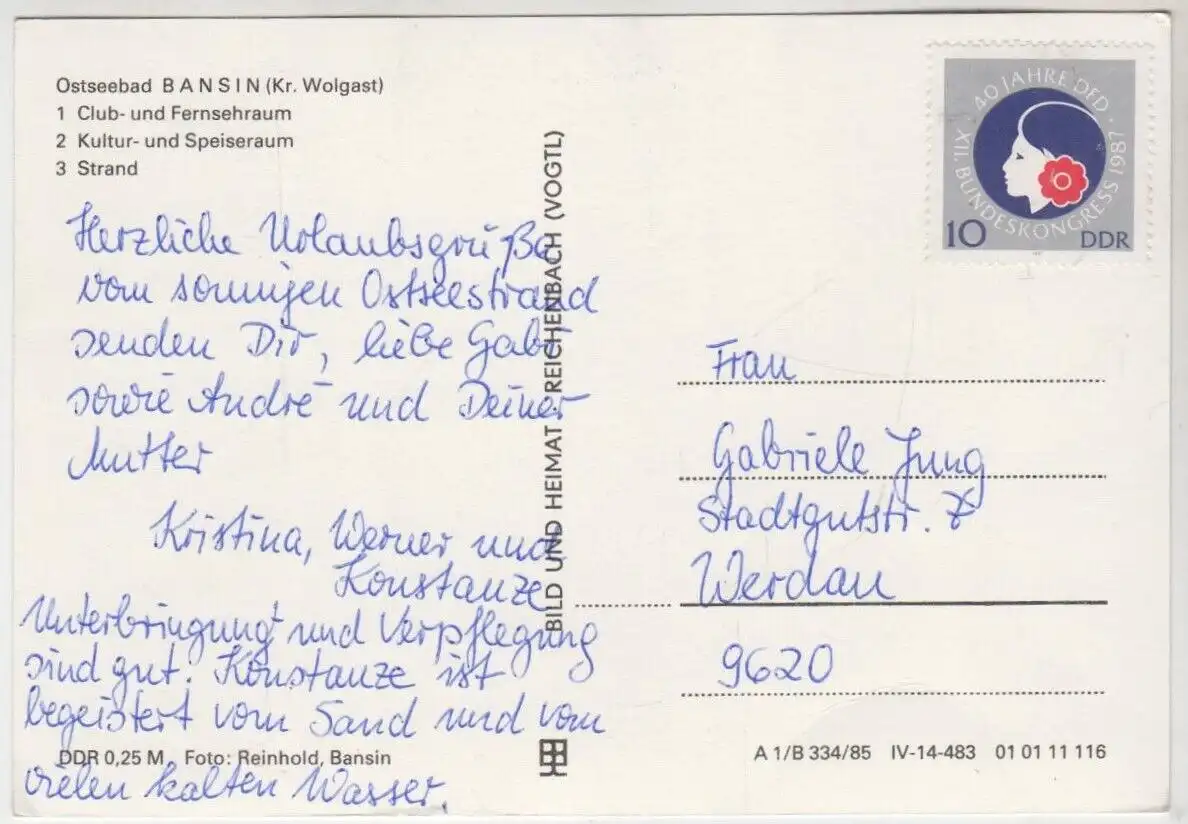 Ostseebad BANSIN (Kr. Wolgast)
1 Club- und Fernsehraum
2 Kultur- und Speiseraum
3 Strand
Herzliche Urlaubsgrüße
vom sonnigen Ostseestrand
senden Dir, liebe Gabi
sowie André und Deiner
Mutter
Kristina, Werner und
Konstanze
Unterbringung und Verpflegung
sind gut. Konstanze ist
begeistert vom Sand und vom
vielen kalten Wasser.
DDR 0,25 M Foto: Reinhold, Bansin
BILD UND HEIMAT REICHENBACH (VOGTL)
40 JAHRE DFD · XII. BUNDESKONGRESS 1987
10 DDR
Frau
Gabriele Jung
Stadtgutstr. 7
Werdau
9620
A 1/B 334/85 IV-14-483 01 01 11 116